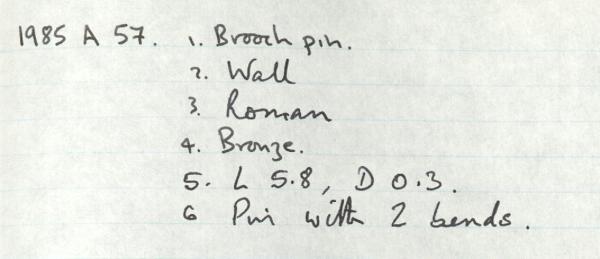 1985 A 57. 1. Brooch pin.
2. Wall
3. Roman
4. Bronze.
5. L 5.8, D 0.3.
6 Pin with 2 bends.